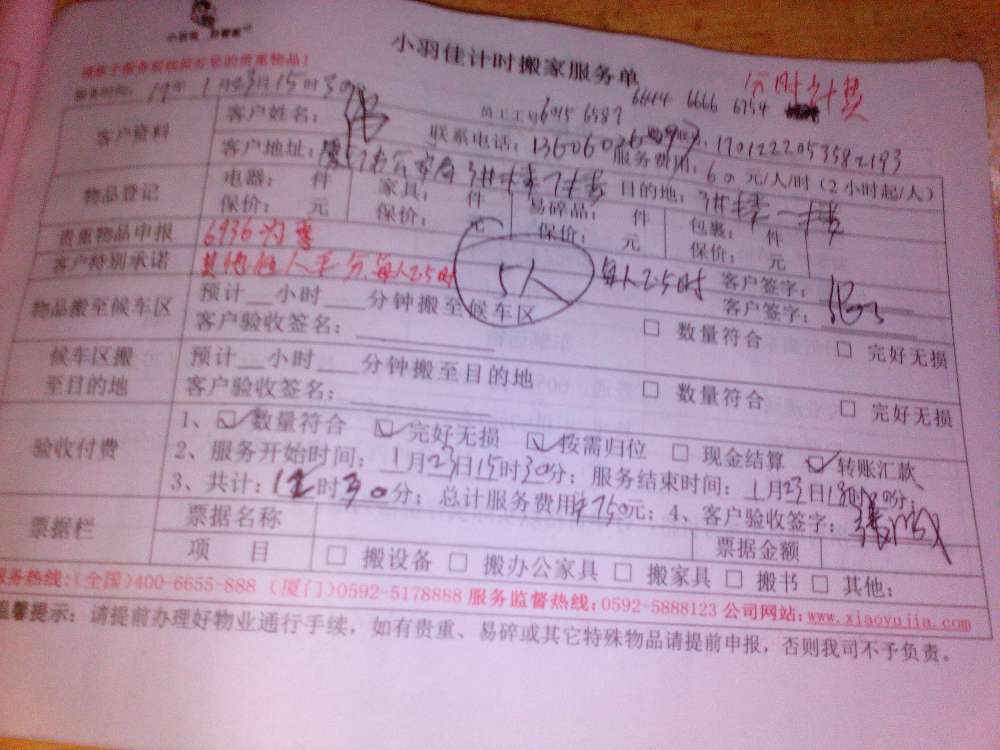 小羽佳计时搬家服务单
分时计费
服务时间: 17年 1月23日15时30
员工工号6945 6587 6644 6666 6754
客户资料 客户姓名: 联系电话: 服务费用: 60元/人/时 (2小时起/人)
客户地址: 目的地:
物品登记 电器: 件 家具: 件 易碎品: 件 包裹: 件
保价: 元 保价: 元 保价: 元 保价: 元
贵重物品申报 6936为 客户签字:
客户特别承诺 其他 人平分每人2.5时 5人 每人2.5时 客户签字:
物品搬至候车区 预计__小时___分钟搬至候车区 □ 数量符合 □ 完好无损
客户验收签名:
候车区搬至目的地 预计__小时___分钟搬至目的地 □ 数量符合 □ 完好无损
客户验收签名:
验收付费 1、☑数量符合 ☑完好无损 ☑按需归位 □ 现金结算 ☑转账汇款
2、服务开始时间: 1月23日15时30分; 服务结束时间: 1月23日18时00分;
3、共计:12时30分; 总计服务费用¥750元; 4、客户验收签字:
票据栏 票据名称 票据金额
项 目 □ 搬设备 □ 搬办公家具 □ 搬家具 □ 搬书 □ 其他:
服务热线:(全国)400-6655-888 (厦门)0592-5178888 服务监督热线:0592-5888123 公司网站:www.xiaoyujia.com
温馨提示: 请提前办理好物业通行手续，如有贵重、易碎或其它特殊物品请提前申报，否则我司不予负责。